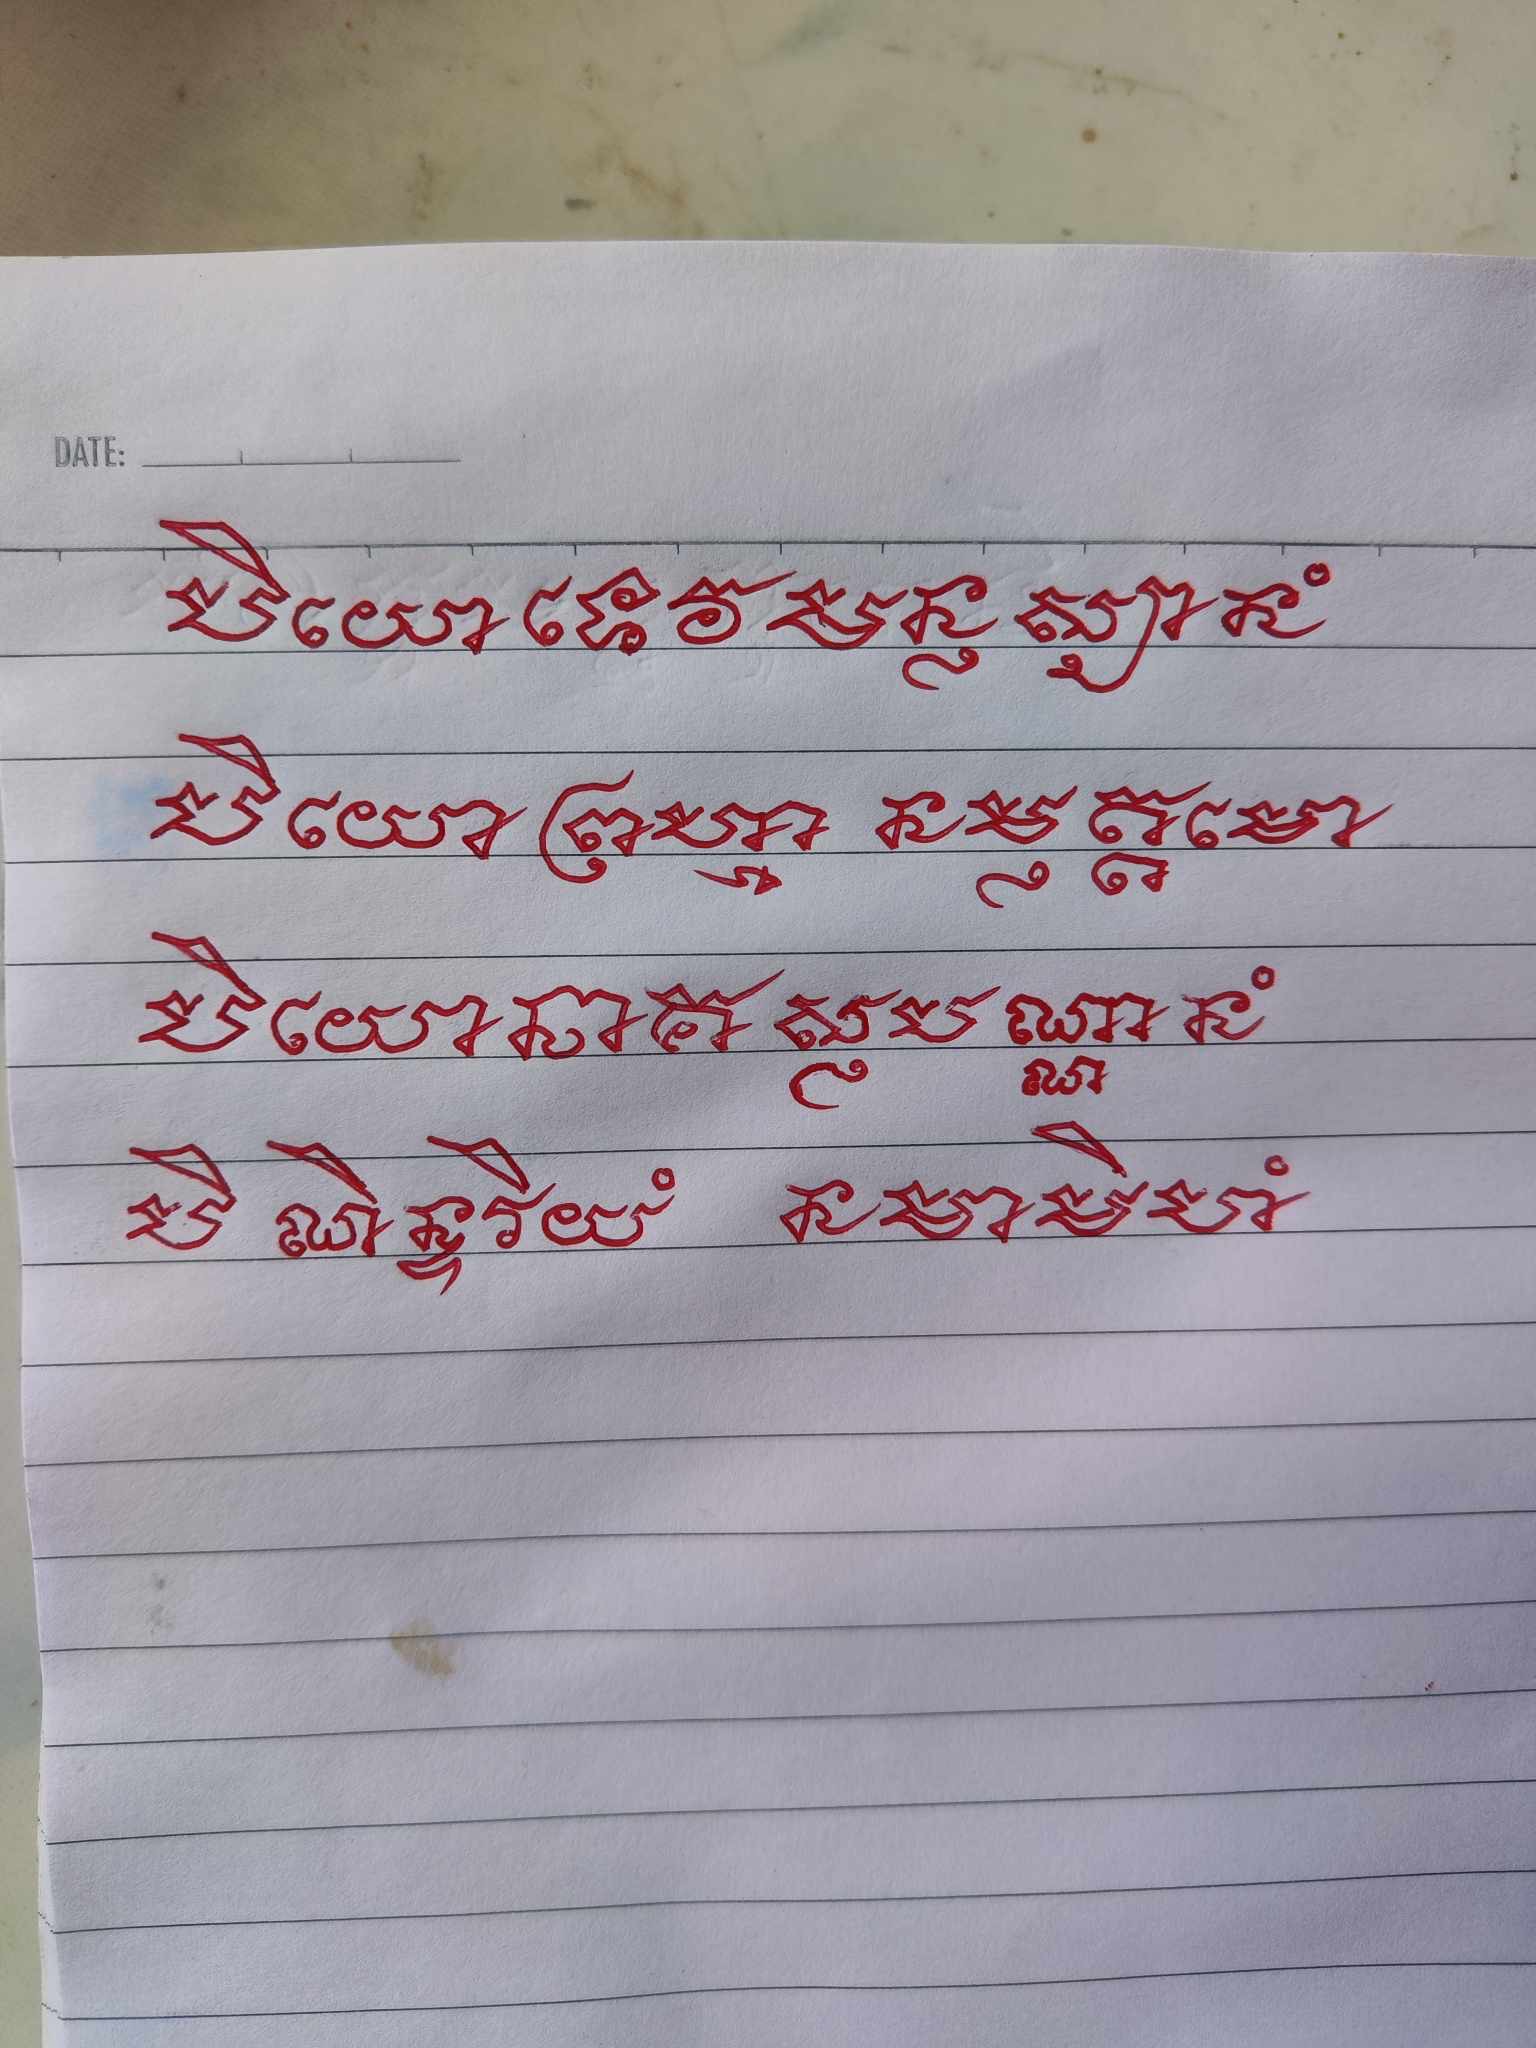 បិយោ ទេវមនុស្សានំ
បិយោ ព្រហ្មា នមុត្តមោ
បិយោ នាគសុបណ្ណានំ
បិ ណិន្ទរិយំ នមាមិហំ